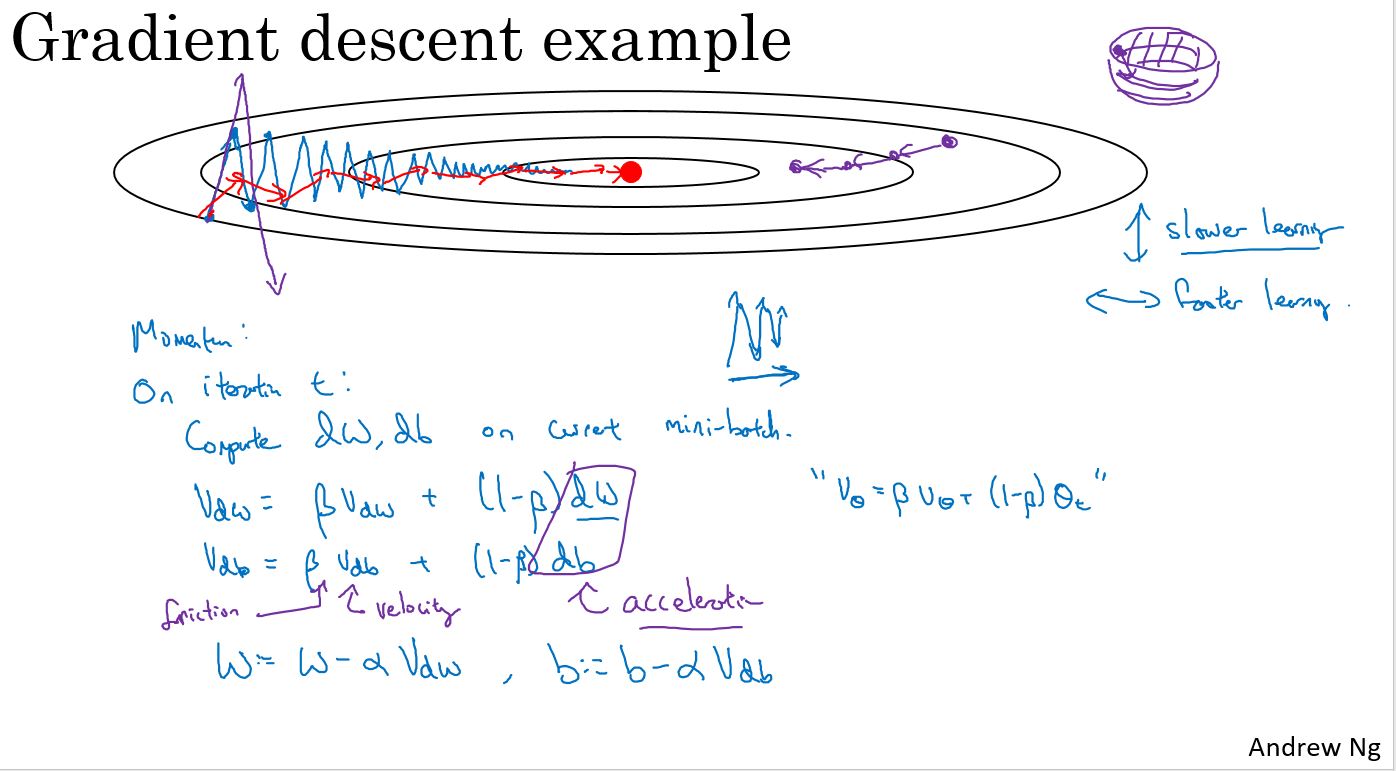 Gradient descent example
↕ slower learning
↔ faster learning.
Momentum:
On iteration t:
Compute dW, db on current mini-batch.
V_dw = β V_dw + (1-β) dW
"V_θ = β V_θ + (1-β) θ_t"
V_db = β V_db + (1-β) db
friction velocity acceleration
W := W - α V_dw , b := b - α V_db
Andrew Ng